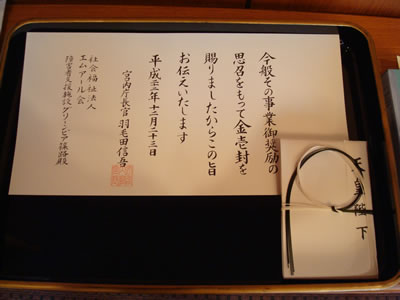 今般その事業御奨励の
思召をもって金壱封を
賜りましたからこの旨
お伝えいたします
平成二十一年十二月二十三日
宮内庁長官 羽毛田信吾
社会福祉法人
エムアール会
障害者支援施設 グリーンピア篠路殿
天皇陛下